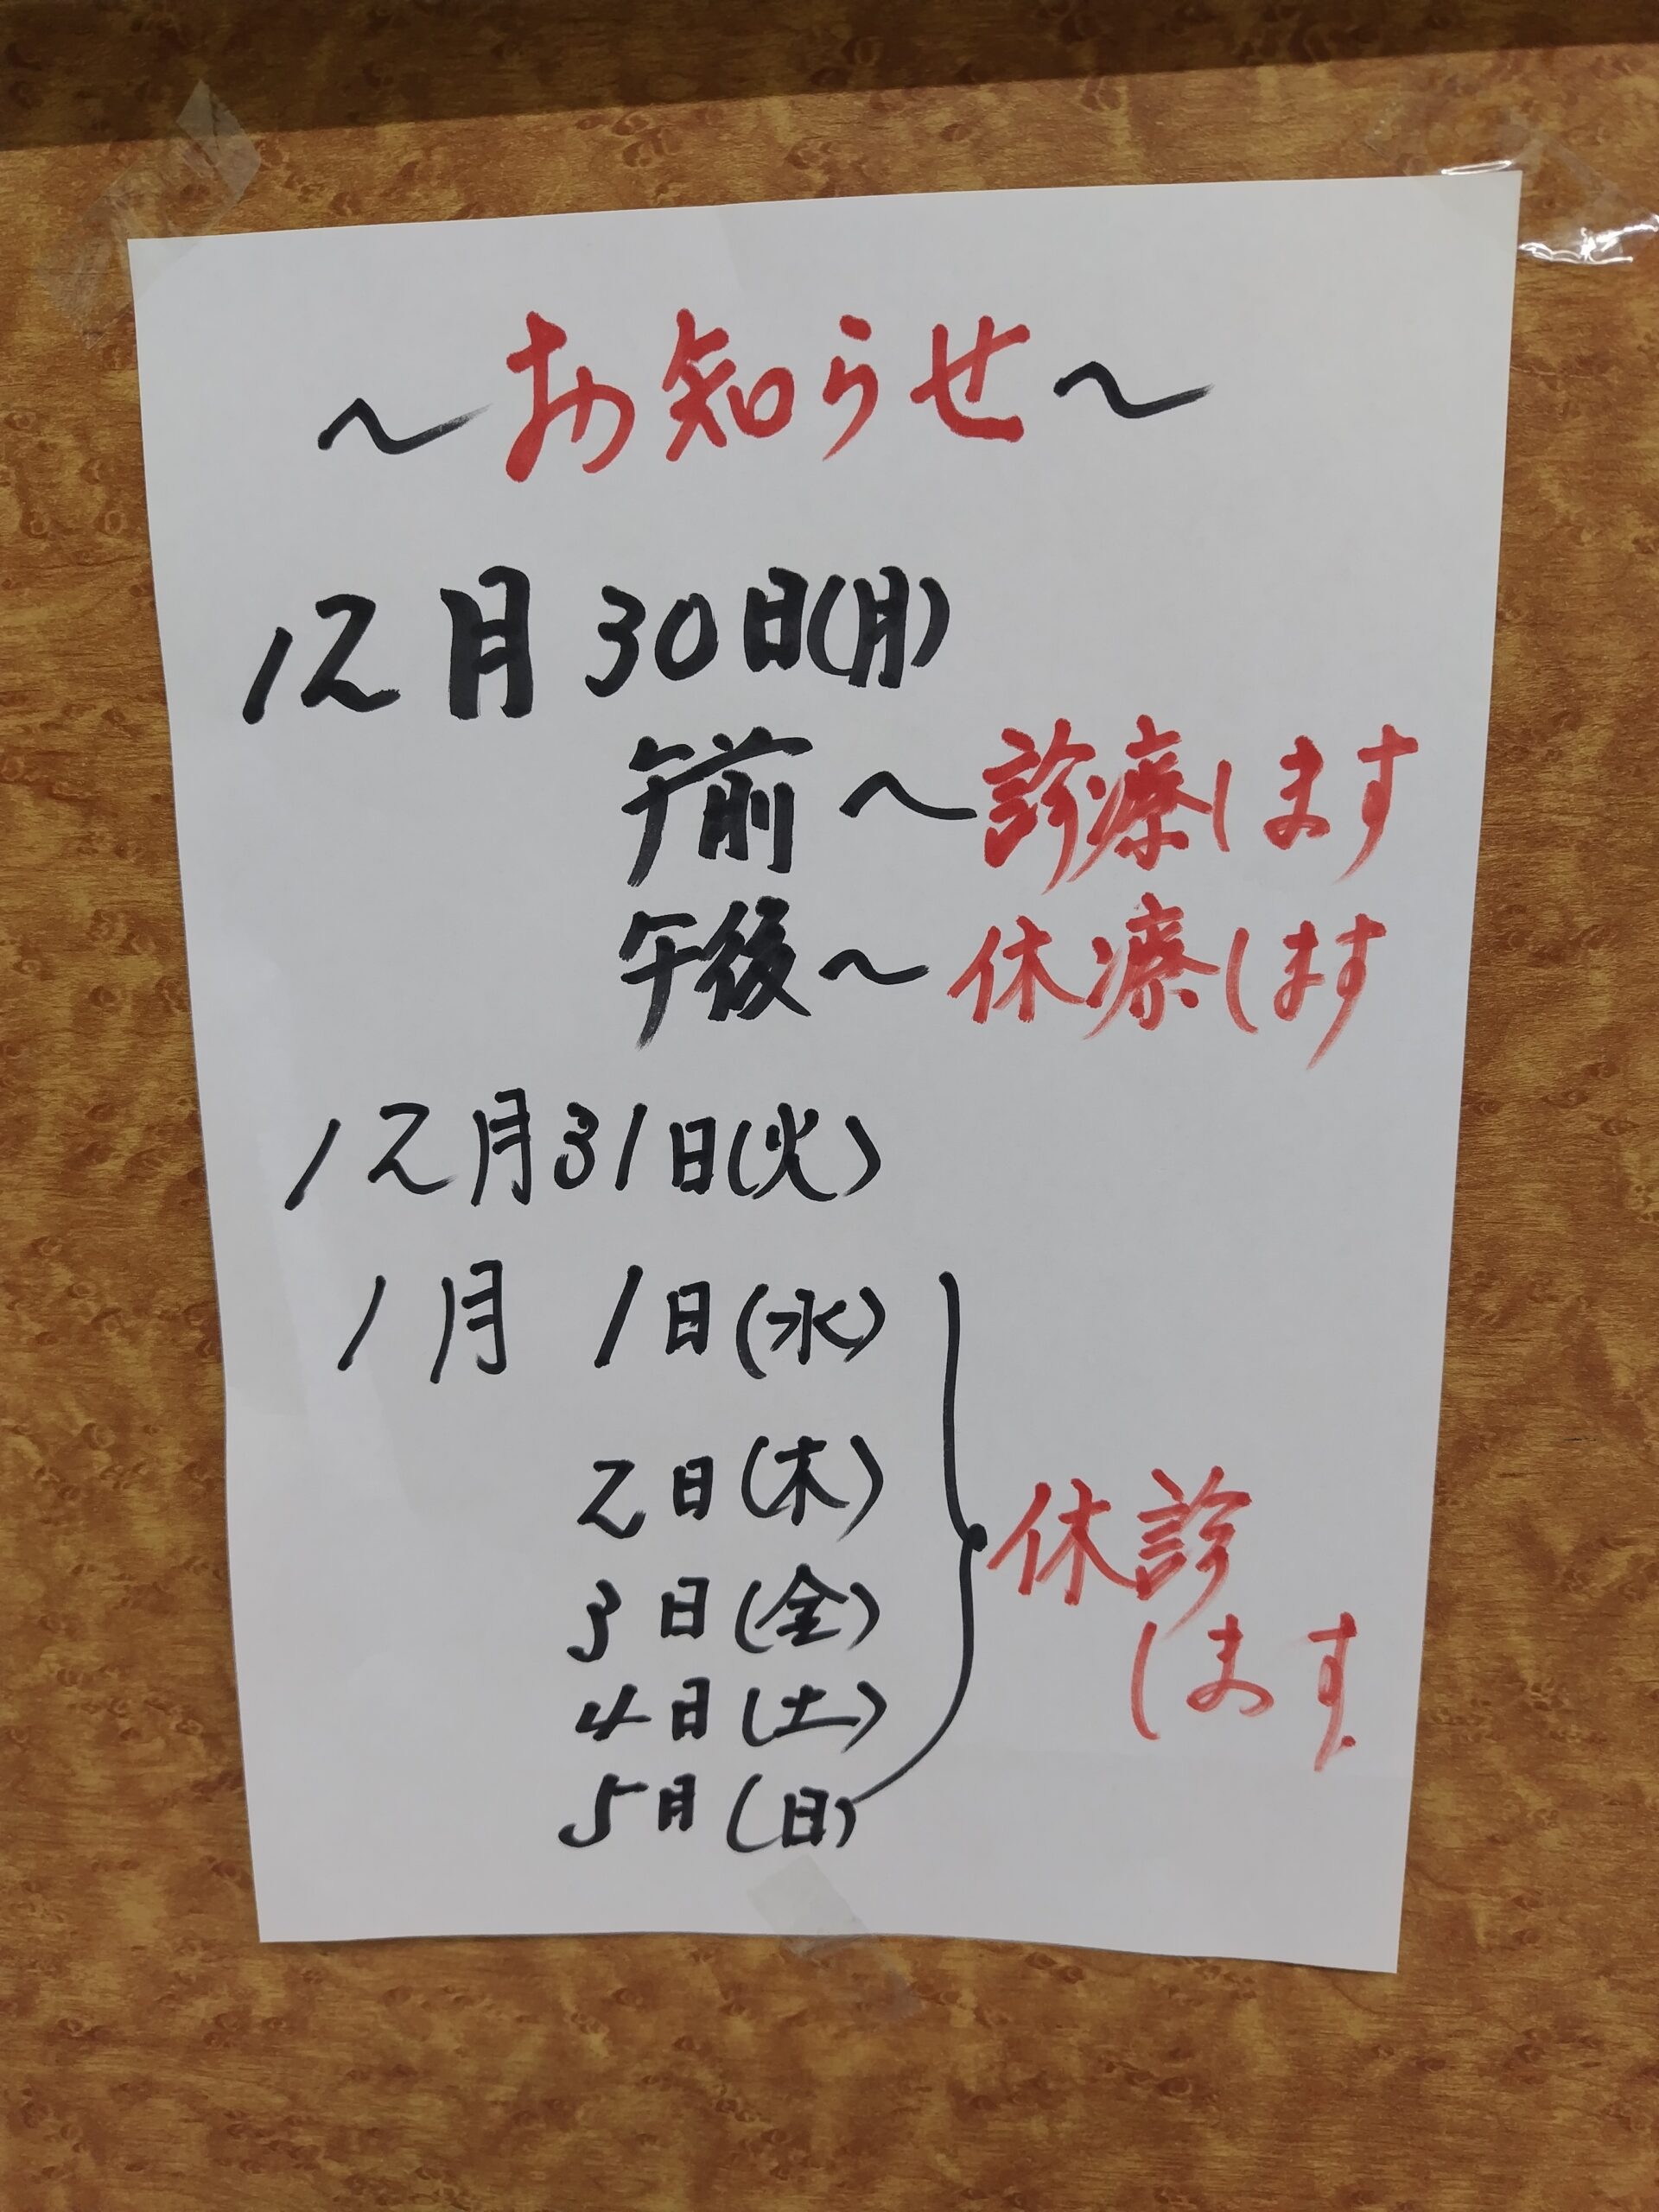 ～お知らせ～
12月30日(月)
午前～診療します
午後～休療します
12月31日(火)
1月 1日(水)
2日(木)
3日(金)
4日(土)
5日(日)
休診
します